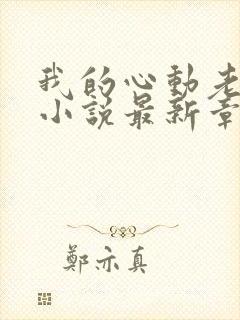 我的心動老
小說最新章
鄭亦真